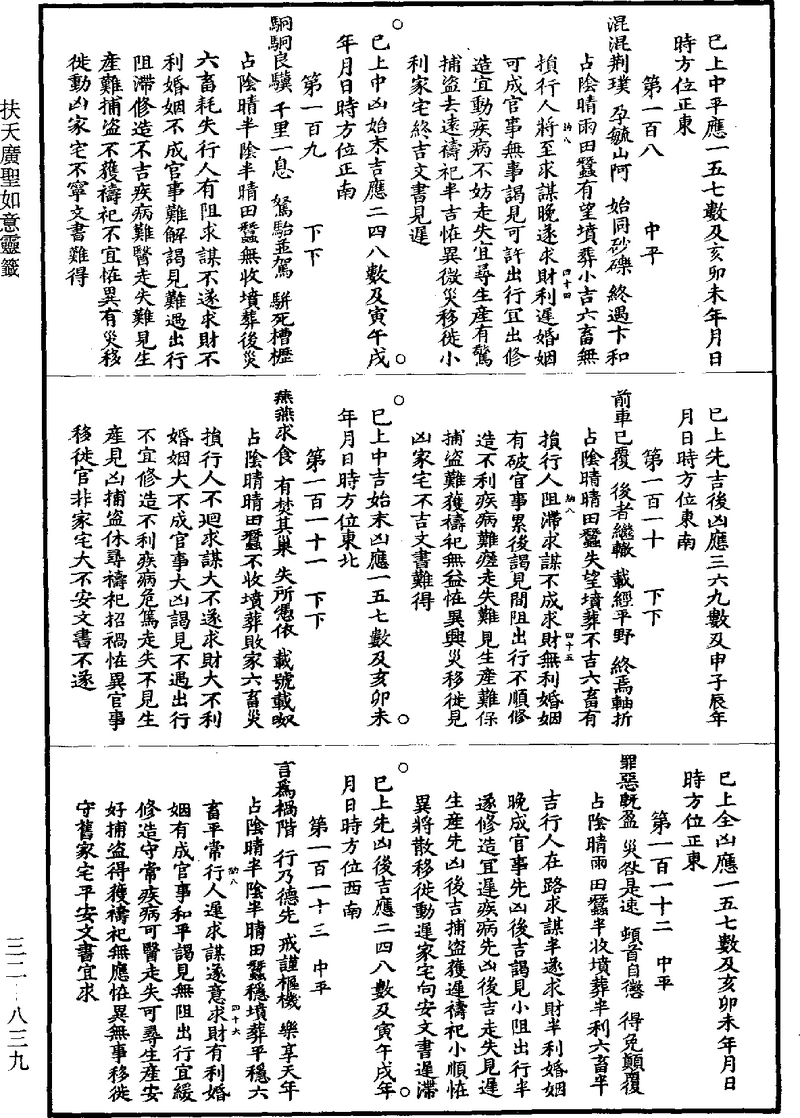 已上中平應一五七數及亥卯未年月日
時方位正東
第一百八　中平
混混荆璞　孕毓山阿　始同砂礫　終遇卞和
占陰晴雨田蠶有望墳葬小吉六畜無
損行人將至求謀晚遂求財利遲婚姻
可成官事無事謁見可許出行宜出修
造宜動疾病不妨走失宜尋生産有驚
捕盜去遠禱祀半吉怪異微災移徙小
利家宅終吉文書見遲
已上中凶始末吉應二四八數及寅午戌
年月日時方位正南
第一百九　下下
駉駉良驥　千里一息　駑駘並駕　駢死槽櫪
占陰晴半陰半晴田蠶無收墳葬後災
六畜耗失行人有阻求謀不遂求財不
利婚姻不成官事難解謁見難遇出行
阻滯修造不吉疾病難醫走失難見生
産難捕盜不獲禱祀不宜怪異有災移
徙動凶家宅不寧文書難得
已上先吉後凶應三六九數及申子辰年
月日時方位東南
第一百一十　下下
前車已覆　後者繼轍　載經平野　終焉軸折
占陰晴晴田蠶失望墳葬不吉六畜有
損行人阻滯求謀不成求財無利婚姻
有破官事累後謁見間阻出行不順修
造不利疾病難瘥走失難見生産難保
捕盜難獲禱祀無益怪異興災移徙見
凶家宅不吉文書難得
已上中吉始末凶應一五七數及亥卯未
年月日時方位東北
第一百一十一　下下
燕燕求食　有焚其巢　失所憑依　載號載呶
占陰晴晴田蠶不收墳葬敗家六畜災
損行人不迴求謀大不遂求財大不利
婚姻大不成官事大凶謁見不遇出行
不宜修造不利疾病危篤走失不見生
産見凶捕盜休尋禱祀招禍怪異官事
移徙官非家宅大不安文書不遂
已上全凶應一五七數及亥卯未年月日
時方位正東
第一百一十二　中平
罪惡既盈　災欲是速　頓首自懲　得免顛覆
占陰晴雨田蠶半收墳葬半利六畜半
吉行人在路求謀半遂求財半利婚姻
晚成官事先凶後吉謁見小阻出行半
遂修造宜遲疾病先凶後吉走失見遲
生産先凶後吉捕盜獲遲禱祀小順怪
異將散移徙動遲家宅向安文書遲滯
已上先凶後吉應二四八數及寅午戌年
月日時方位西南
第一百一十三　中平
言爲禍階　行乃德先　戒謹樞機　樂享天年
占陰晴半陰半晴田蠶穩墳葬平穩六
畜平常行人遲求謀遂意求財有利婚
姻有成官事和平謁見無阻出行宜緩
修造守常疾病可醫走失可尋生産安
好捕盜得獲禱祀無應怪異無事移徙
守舊家宅平安文書宜求
扶天廣聖如意靈籤
三二—八三九